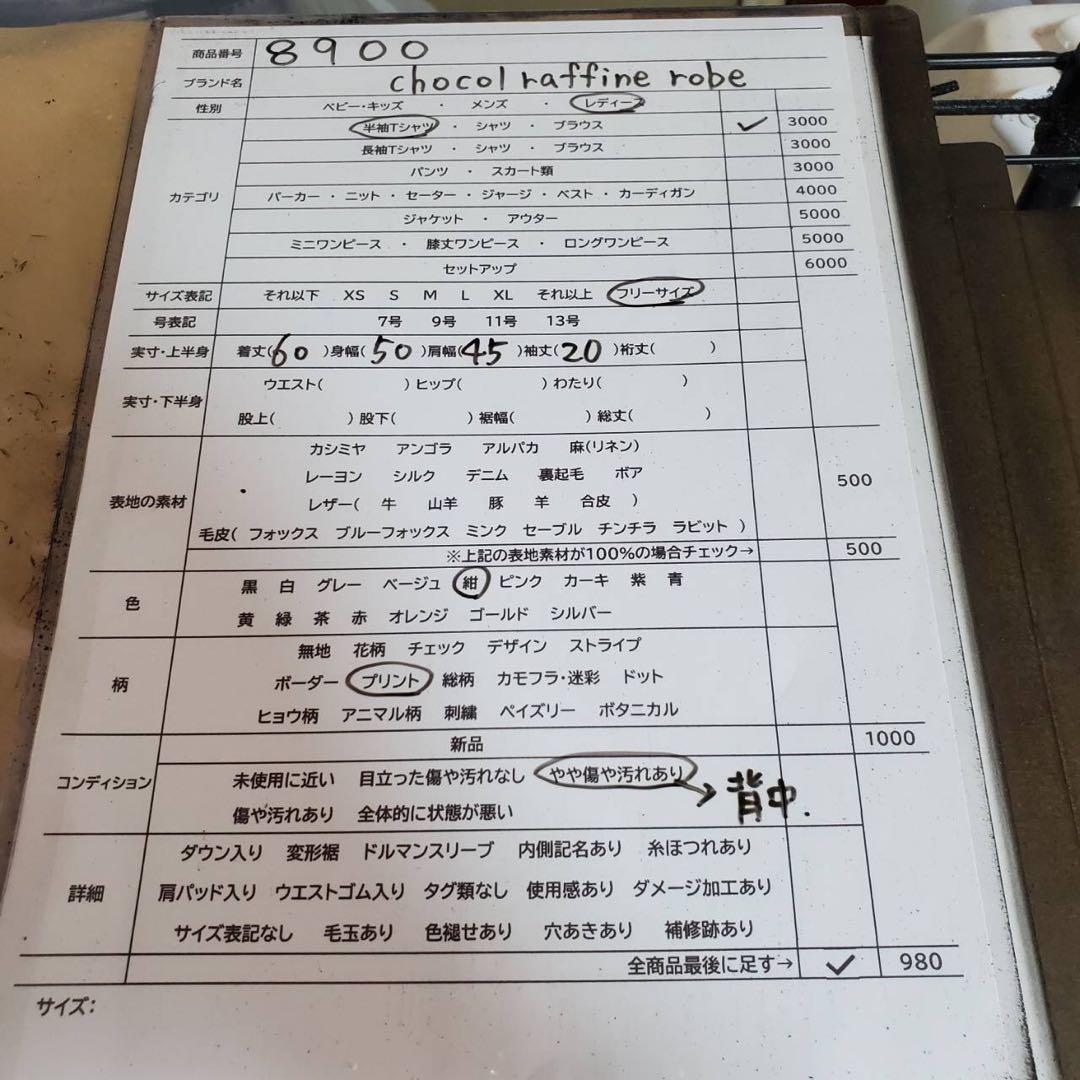 商品番号 8900
ブランド名 chocol raffine robe
性別 ベビー・キッズ ・ メンズ ・ レディース
半袖Tシャツ ・ シャツ ・ ブラウス ✓ 3000
長袖Tシャツ ・ シャツ ・ ブラウス 3000
パンツ ・ スカート類 3000
カテゴリ パーカー ・ ニット ・ セーター ・ ジャージ ・ ベスト ・ カーディガン 4000
ジャケット ・ アウター 5000
ミニワンピース ・ 膝丈ワンピース ・ ロングワンピース 5000
セットアップ 6000
サイズ表記 それ以下 XS S M L XL それ以上 フリーサイズ
号表記 7号 9号 11号 13号
実寸・上半身 着丈(60)身幅(50)肩幅(45)袖丈(20)裄丈( )
実寸・下半身 ウエスト( )ヒップ( )わたり( )
股上( )股下( )裾幅( )総丈( )
カシミヤ アンゴラ アルパカ 麻(リネン)
レーヨン シルク デニム 裏起毛 ボア 500
表地の素材 レザー( 牛 山羊 豚 羊 合皮 )
毛皮( フォックス ブルーフォックス ミンク セーブル チンチラ ラビット )
※上記の表地素材が100%の場合チェック→ 500
色 黒 白 グレー ベージュ 紺 ピンク カーキ 紫 青
黄 緑 茶 赤 オレンジ ゴールド シルバー
無地 花柄 チェック デザイン ストライプ
柄 ボーダー プリント 総柄 カモフラ・迷彩 ドット
ヒョウ柄 アニマル柄 刺繍 ペイズリー ボタニカル
新品 1000
コンディション 未使用に近い 目立った傷や汚れなし やや傷や汚れあり → 背中.
傷や汚れあり 全体的に状態が悪い
ダウン入り 変形裾 ドルマンスリーブ 内側記名あり 糸ほつれあり
詳細 肩パッド入り ウエストゴム入り タグ類なし 使用感あり ダメージ加工あり
サイズ表記なし 毛玉あり 色褪せあり 穴あきあり 補修跡あり
全商品最後に足す→ ✓ 980
サイズ: